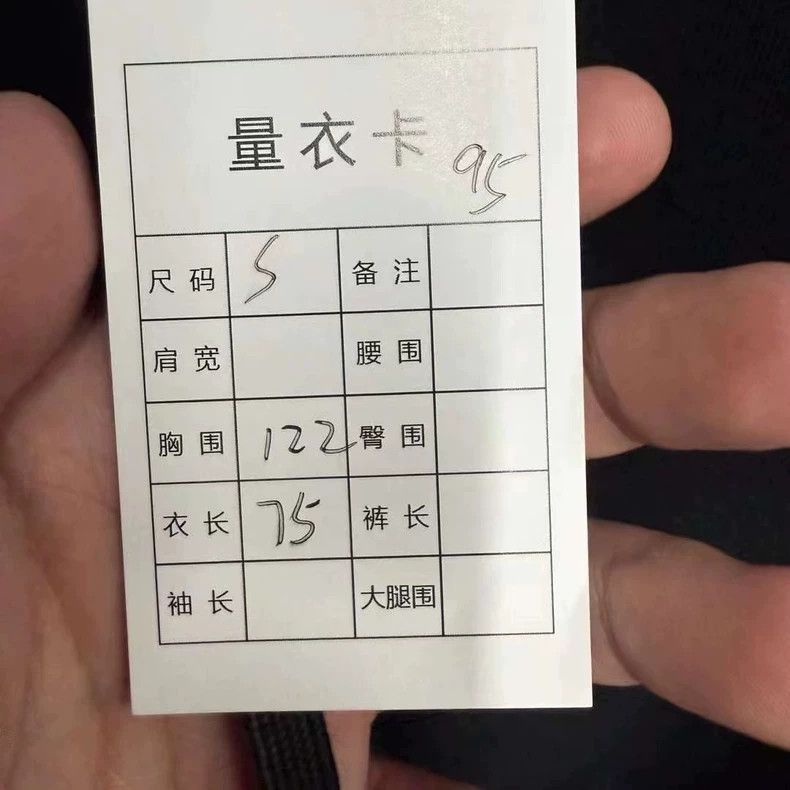 量衣卡
95
尺码 S 备注
肩宽 腰围
胸围 122 臀围
衣长 75 裤长
袖长 大腿围